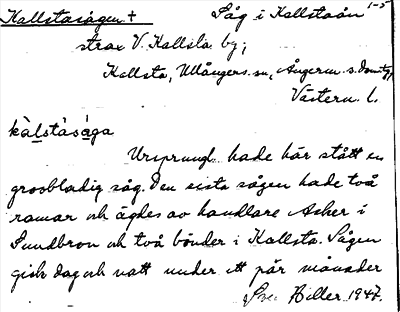 Kallstasågen + Såg i Kallstaån 1-5
strax V. Kallsta by;
Kallsta, Ullångers sn, Ångerm. s. domsg,
Västern. l.
kàlstàsága
Ursprungl. hade här stått en
grovbladig såg. Den sista sågen hade två
ramar och ägdes av handlare Asher i
Sundbron och två bönder i Kallsta. Sågen
gick dag och natt under ett pår månader
Biller 1947.